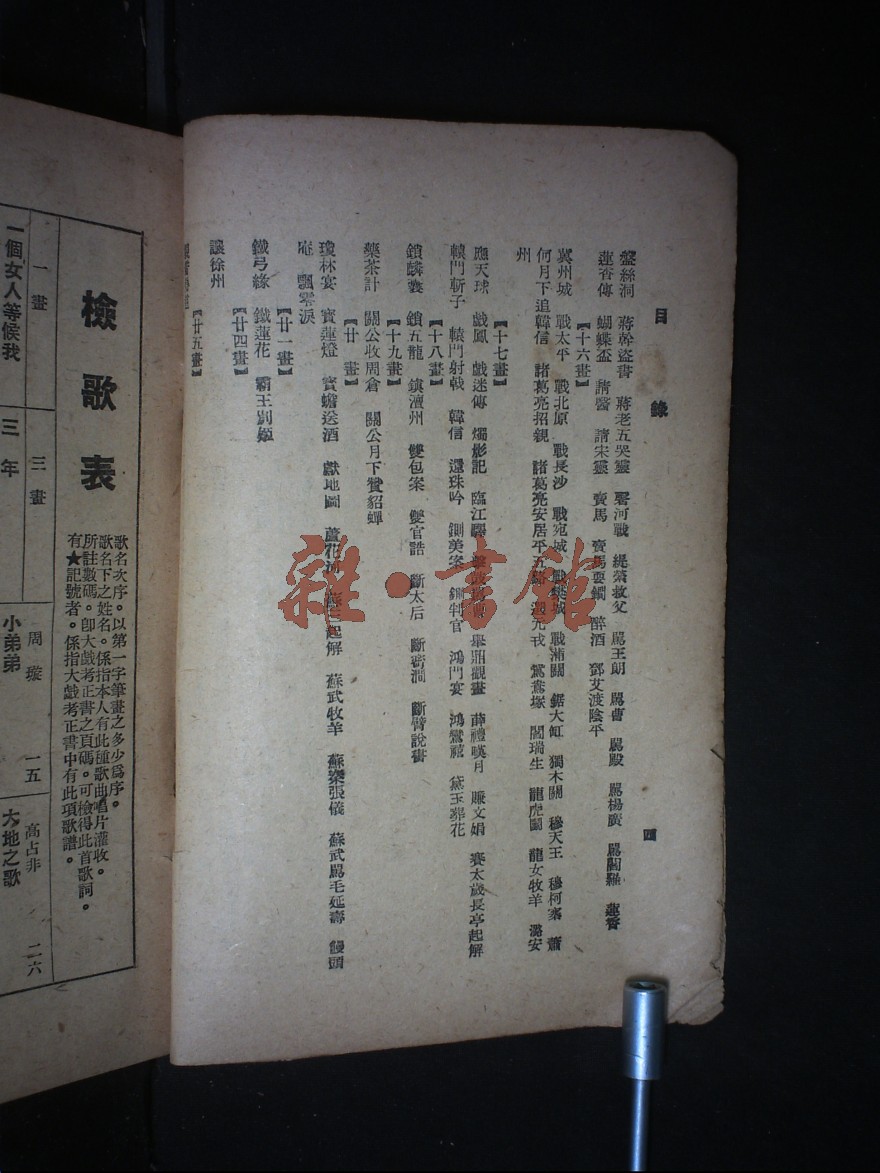 目錄
四
盤絲洞 蔣幹盜書 蔣老五哭靈 罵王朗 罵曹 罵殿 罵楊廣 罵閻羅 蓮香
蓮香傳 蝴蝶盃 請醫 請宋靈 賣馬 賣馬耍鐧 醉酒 鄧艾渡陰平
【十六畫】
冀州城 戰太平 戰北原 戰長沙 戰宛城 戰樊城 戰浦關 鋸大缸 獨木關 穆天王 穆柯寨 蕭
何月下追韓信 諸葛亮招親 諸葛亮安居平五路 鴛鴦塚 閻瑞生 龍虎鬭 龍女牧羊 潞安
州
【十七畫】
應天球 戲鳳 戲迷傳 燭影記 臨江驛 舉鼎觀畫 薛禮嘆月 賺文娟 賽太歲長亭起解
轅門斬子 轅門射戟 韓信 還珠吟 鍘美案 鍘判官 鴻門宴 鴻鸞禧 黛玉葬花
【十八畫】
鎖麟囊 鎖五龍 鎮澶州 雙包案 雙官誥 斷太后 斷密澗 斷臂說書
【十九畫】
藥茶計 關公收周倉 關公月下贊貂蟬
【廿畫】
瓊林宴 寶蓮燈 寶蟾送酒 獻地圖 蘆花河 蘇三起解 蘇武牧羊 蘇秦張儀 蘇武罵毛延壽 饅頭
庵 飄零淚
【廿一畫】
鐵弓緣 鐵蓮花 霸王別姬
【廿四畫】
讓徐州
【廿五畫】
檢歌表
歌名次序。以第一字筆畫之多少爲序。
歌名下之姓名。係指本人有此種歌曲唱片灌收。
所註數碼。卽大戲考正書之頁碼。可檢得此首歌詞。
有★記號者。係指大戲考正書中有此項歌譜。
一畫
三畫
周璇
一五
高占非
二六
一個女人等候我
三年
小弟弟
大地之歌
雜·書館